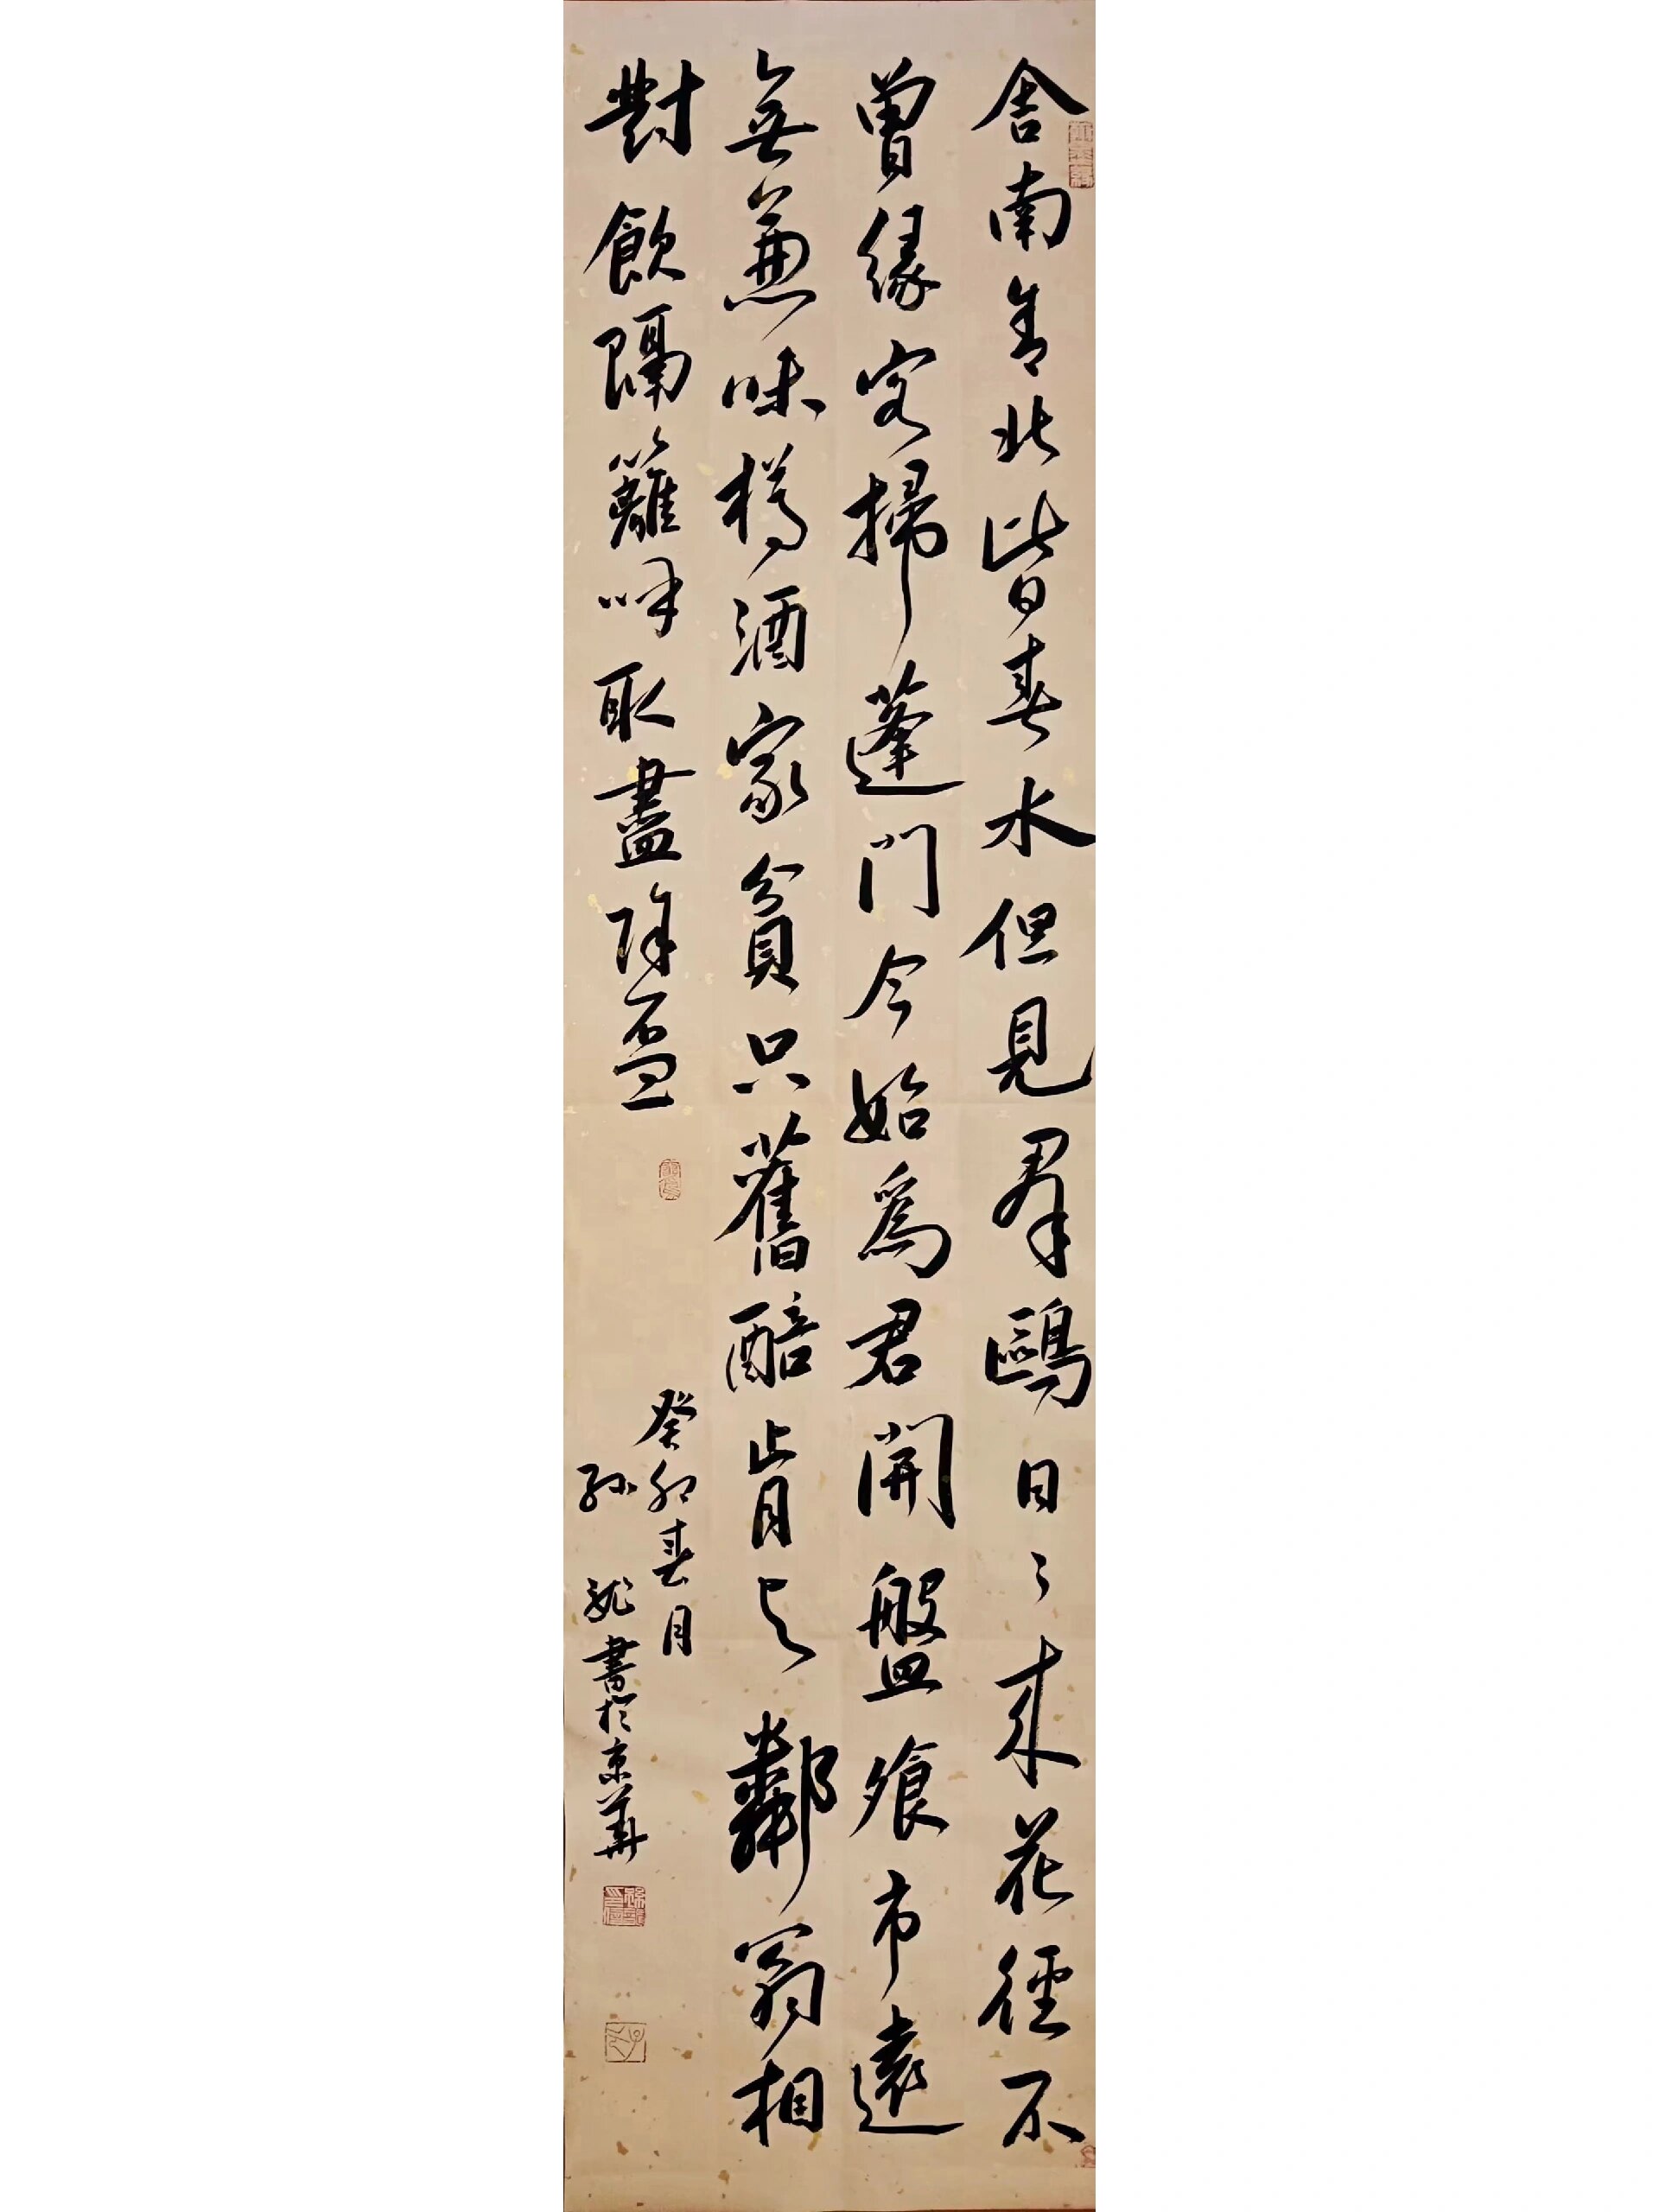 舍南舍北皆春水但見羣鷗日々来花徑不
曾緣客掃蓬門今始為君開盤飧市遠
無兼味樽酒家貧只舊醅肯与鄰翁相
對飲隔籬呼取盡餘盃
癸卯春月
孫龍書於京華